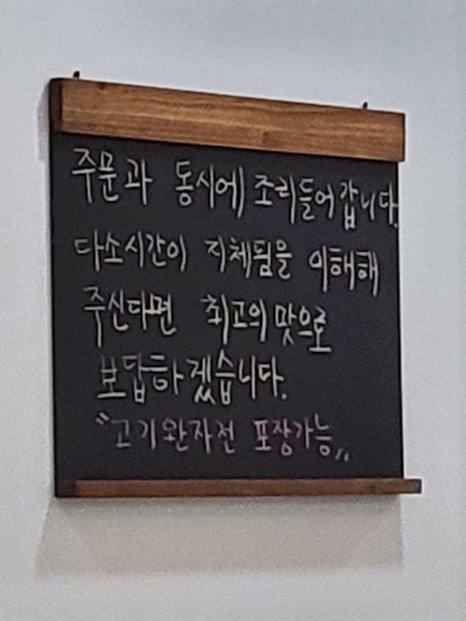 주문과 동시에 조리들어갑니다.
다소시간이 지체됨을 이해해
주신다면 최고의 맛으로
보답하겠습니다.
"고기완자전 포장가능"